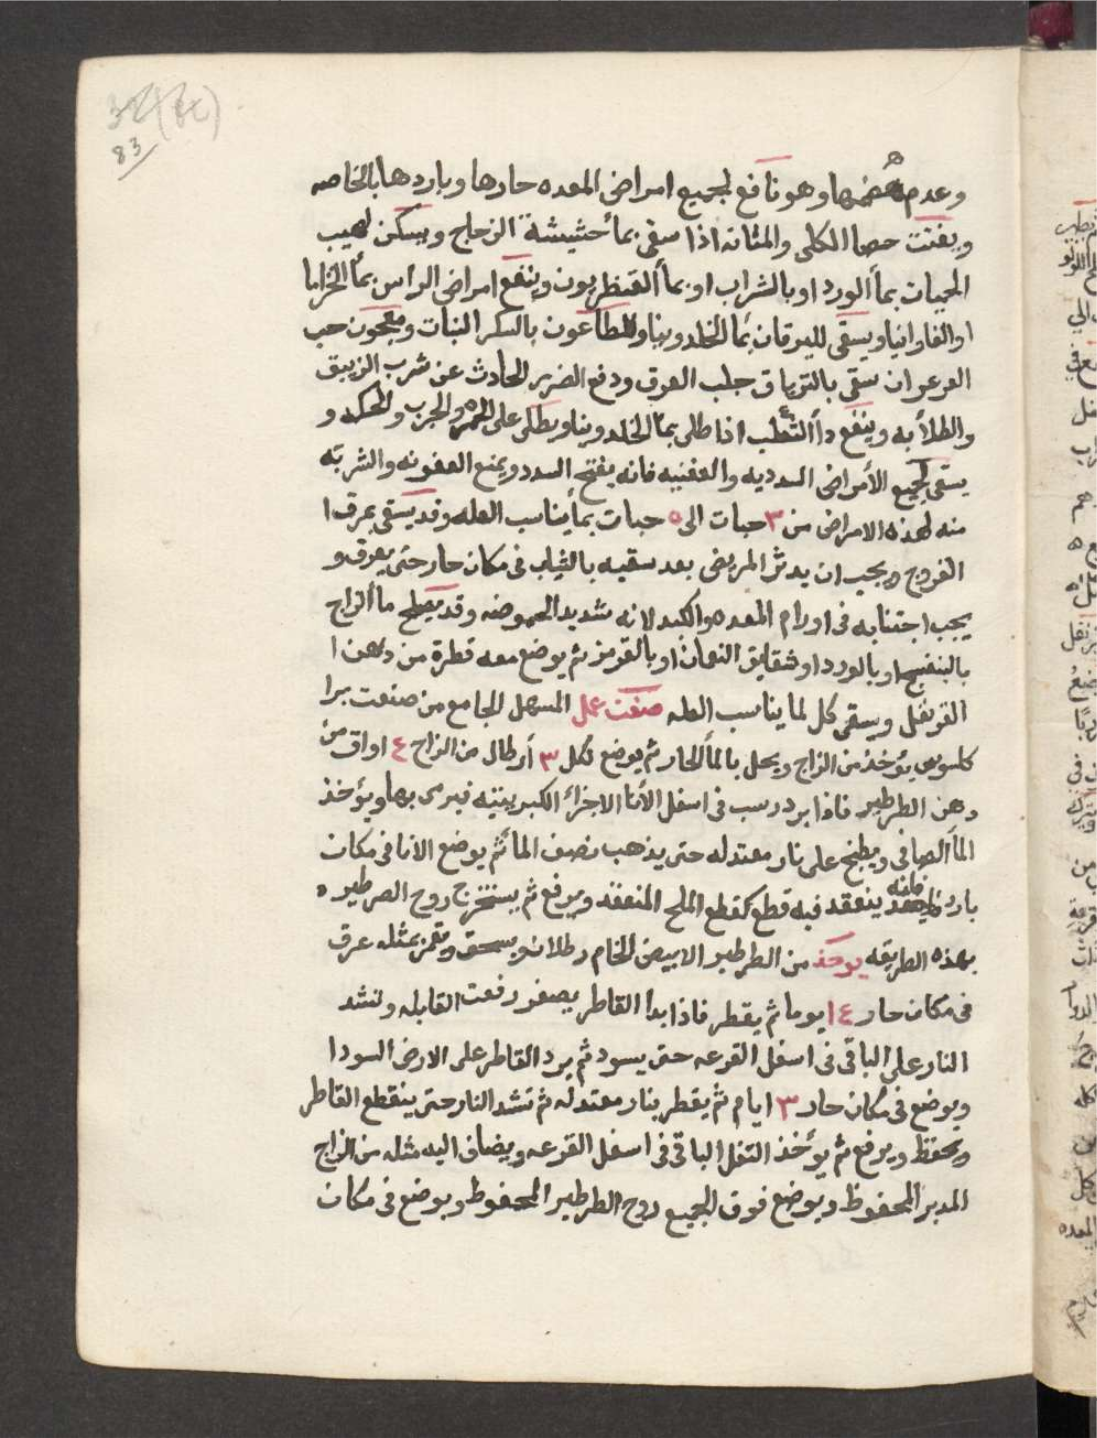 83
وعدم هضمها وهو نافع لجميع امراض المعده حارها وباردها بالخاصه
ويفتت حصا الكلى والمثانه اذا سقى بمأ حشيشة الزجاج ويسكن لهيب
الحميات بمأ الورد او بالشراب او بمأ القنطريون وينفع امراض الراس بمأ الخزاما
او الفاوانيا ويسقى لليرقان بمأ الخلدونيا وللطاعون بالسكر النبات ومعجون حب
العرعر ان سقى بالترياق جلب العرق ودفع الضرر الحادث عن شرب الزيبق
والطلأ به وينفع دأ الثعلب اذا طلى بمأ الخلدونيا ويطلى على والجرب والحكه و
يسقى لجميع الأمراض السدديه والعفنيه فانه يفتح السدد ويمنع العفونه والشربته
منه لهذه الامراض من ٣ حبات الى ٥ حبات بمأ يناسب العله وقد يسقى بمرق ا
الفروج ويجب ان يدثر المريض بعد سقيه بالثياب فى مكان حار حتى يعرق و
يجب اجتنابه فى اورام المعده والكبد لانه شديد الحموضه وقد مأ الزاج
بالبنفسج او بالورد او شقايق النعمان او بالقرمز ثم يوضع معه قطرة من دهن ا
القرنفل ويسقى كل لما يناسب العله صنفت عمل المسهل الجامع من صنعت برا
كلسوس يؤخذ من الزاج ويحل بالمأ الحار ثم يوضع لكل ٣ أرطال من الزاج ٤ اواق من
دهن الطرطير فاذا برد رسب فى اسفل الأنا الاجزأ الكبريتيه فيرمى بها ويؤخذ
المأ الصافى ويطبخ على نار معتدله حتى يذهب نصف المأ ثم يوضع الانا فى مكان
بارد فانه ينعقد فيه قطع كقطع الملح المنعقد ويرفع ثم يستخرج روح الصرطير ه
بهذه الطريقه يوخذ من الطرطير الابيض الخام رطلان ويسحق بمثله عرق
فى مكان حار ١٤ يوما ثم يقطر فاذا بدا القاطر يصفر رفعت القابله وتشد
النار على الباقى فى اسفل القرعه حتى يسود ثم يرد القاطر على الارض السودا
ويوضع فى مكان حار ٣ ايام ثم يقطر بنار معتدله ثم تشد النار حتى ينقطع القاطر
ويحفظ ويرفع ثم يؤخذ التفل الباقى فى اسفل القرعه ويضاف اليه مثله من الزاج
المدبر المحفوظ ويوضع فوق الجميع روح الطرطير المحفوظ ويوضع فى مكان